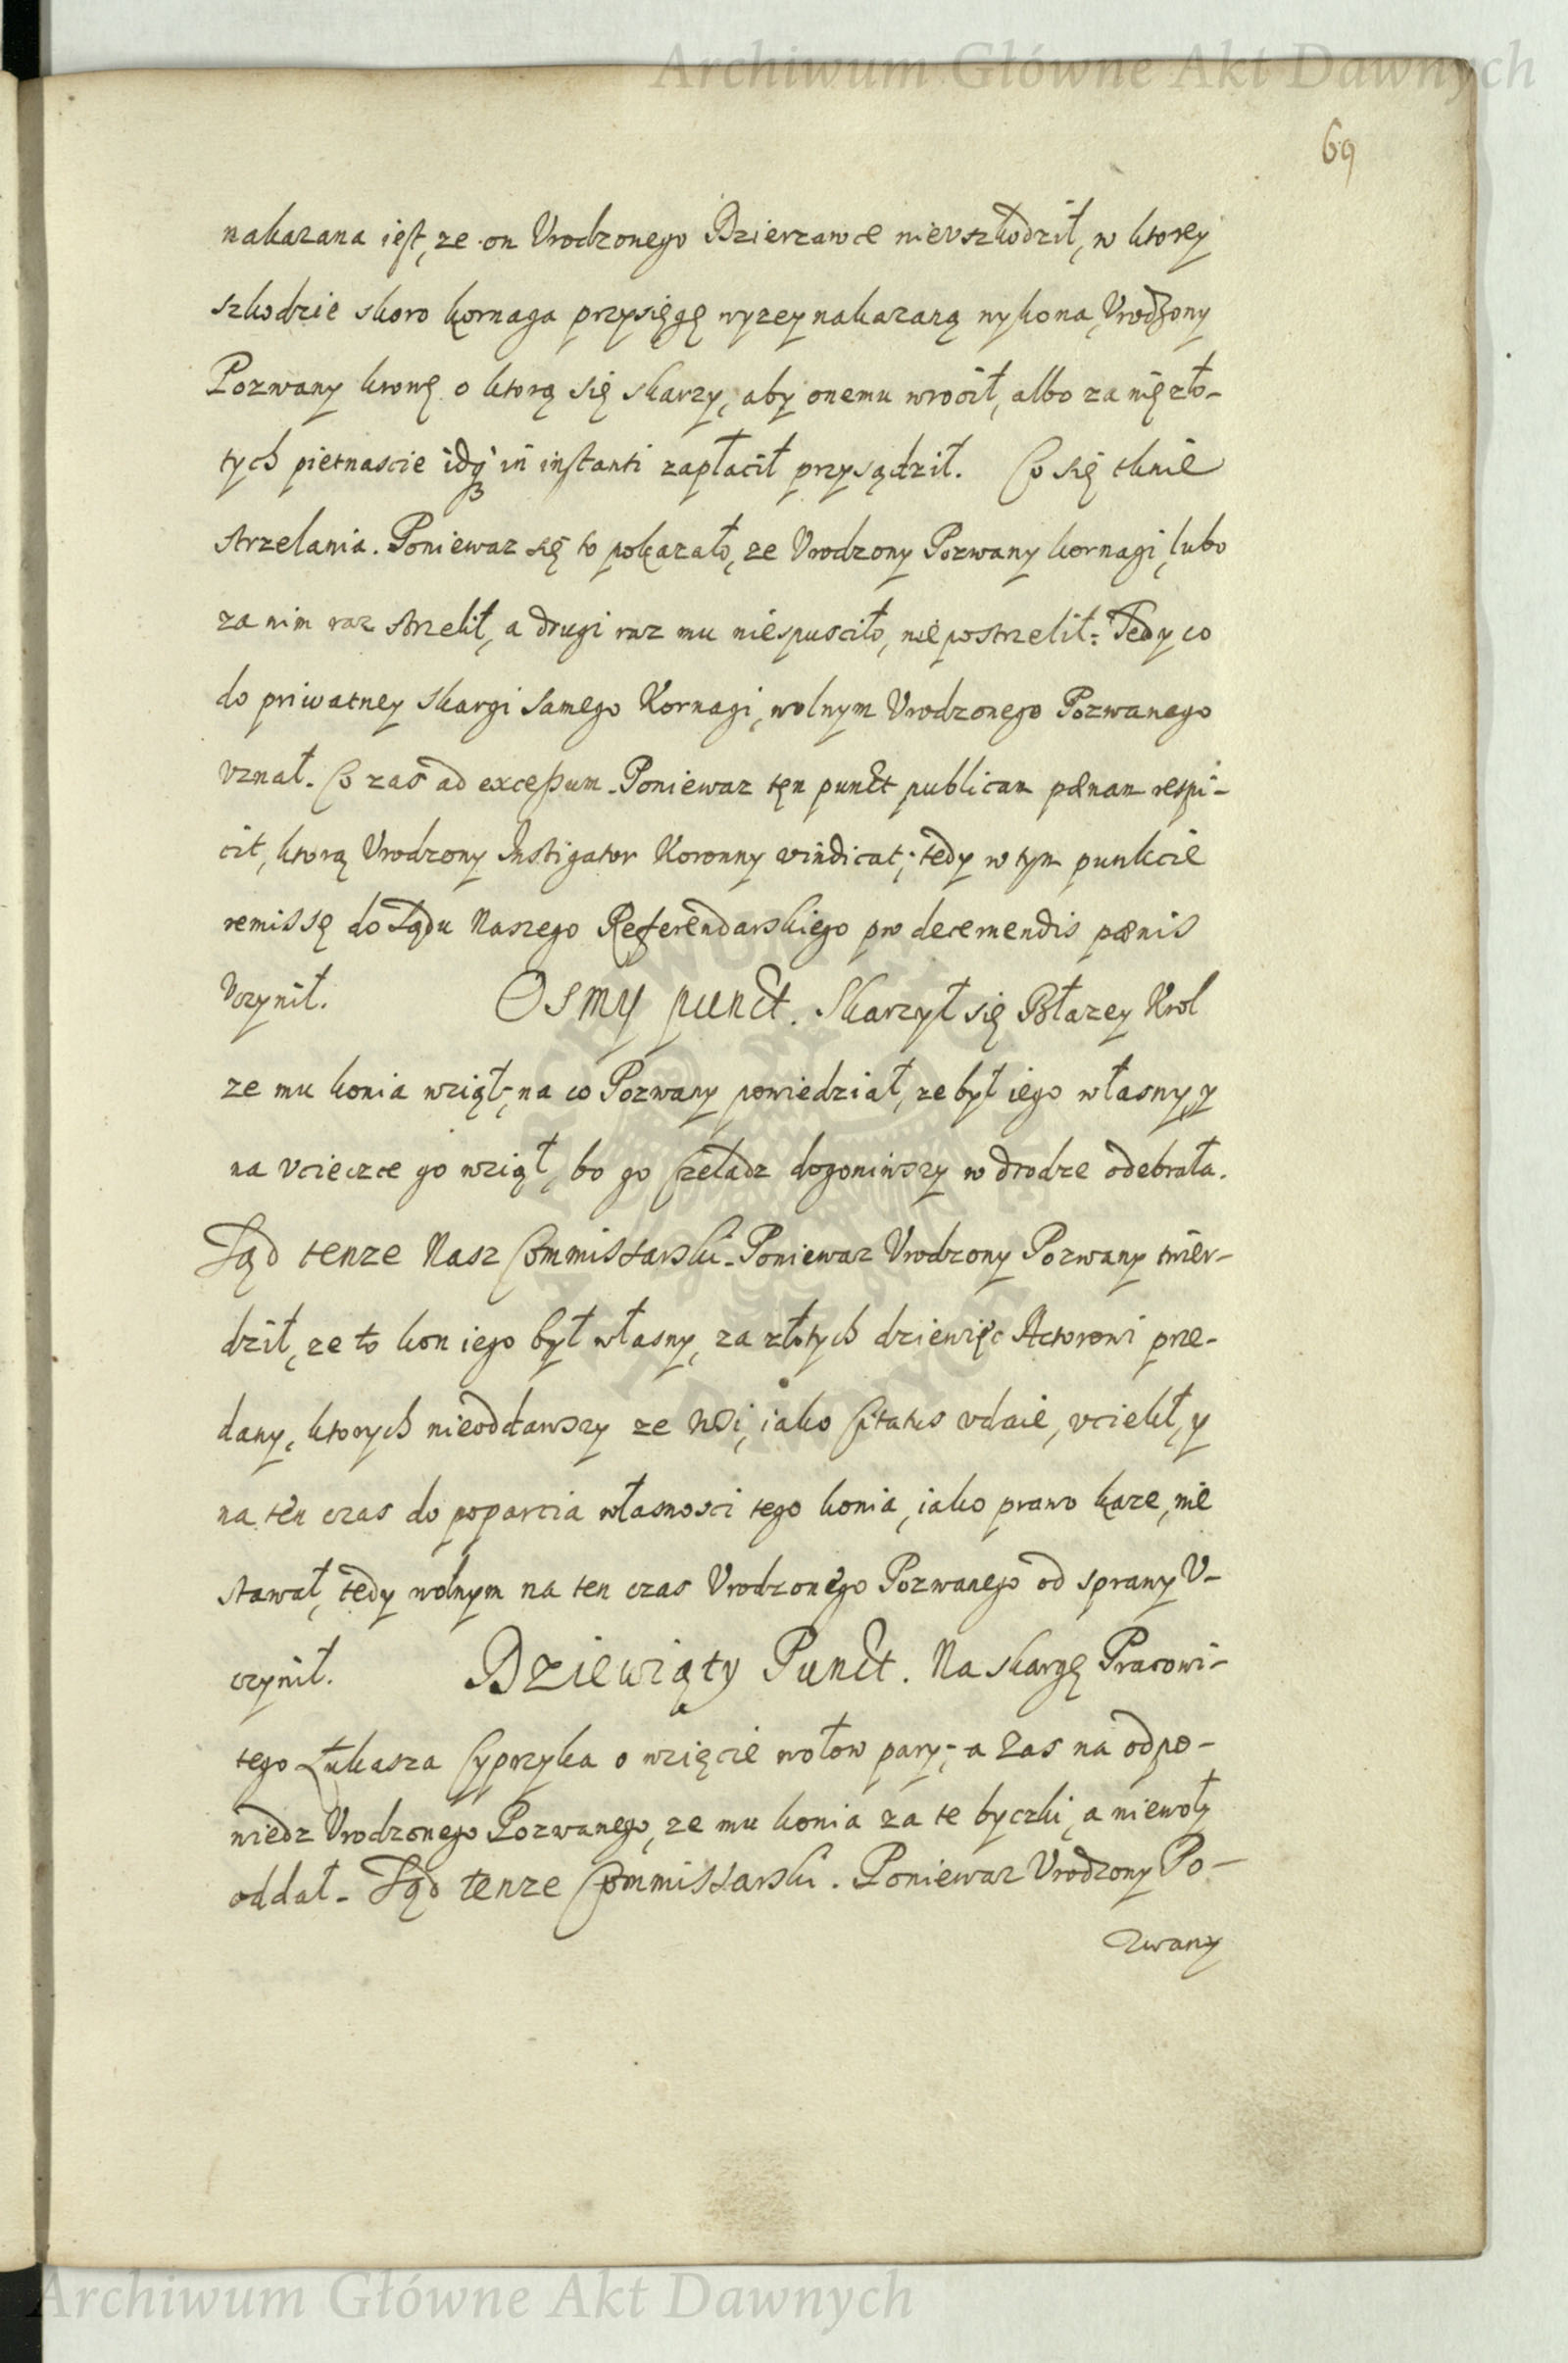 Archiwum Główne Akt Dawnych
69
nakazana iest, ze on Urodzonego Dzierzawce nieuszkodził, w ktorey
szkodzie skoro kornaga przysięgę wyzey nakazaną wykona, Urodzony
Pozwany krowę o ktorą się skarzy, aby onemu wrocił, albo za nię zło-
tych pietnascie idq3 in instanti zapłacił przysądził. Co się tknie
strzelania. Poniewaz się to pokazało, ze Urodzony Pozwany kornagi, lubo
za nim raz strzelił, a drugi raz mu niespusciło, nie postrzelił: Tedy co
do priwatney skargi samego Kornagi, wolnym Urodzonego Pozwanego
vznał. Co zas ad excessum. Poniewaz ten punct publicam pænam respi-
cit, ktorą Urodzony Instigator Koronny vindicat; tedy w tym punkcie
remissę do Sądu Naszego Referendarskiego pro decernendis pænis
Uczynił. Osmy punct. Skarzył się Błazey Krol
ze mu konia wziął; na co Pozwany powiedział, ze był iego własny, y
na vcieczce go wziął, bo go Czeladz dogoniwszy w drodze odebrała.
Sąd tenze Nasz Commissarski. Poniewaz Urodzony Pozwany twier-
dził, ze to kon iego był własny, za złotych dziewięc Actorowi prze-
dany, ktorych nieoddawszy ze Wsi, iako Citatus vdaie, vciekł, y
na ten czas do poparcia własnosci tego konia, iako prawo kaze, nie
stawał, tedy wolnym na ten czas Urodzonego Pozwanego od sprawy U-
czynił. Dziewiąty Punct. Na skargę Pracowi-
tego Łukasza Cyprzyka o wzięcie wołow pary; a zas na odpo-
wiedz Urodzonego Pozwanego, ze mu konia za te byczki, a niewoły
oddał. Sąd tenze Commissarski. Poniewaz Urodzony Po-
zwany
Archiwum Główne Akt Dawnych